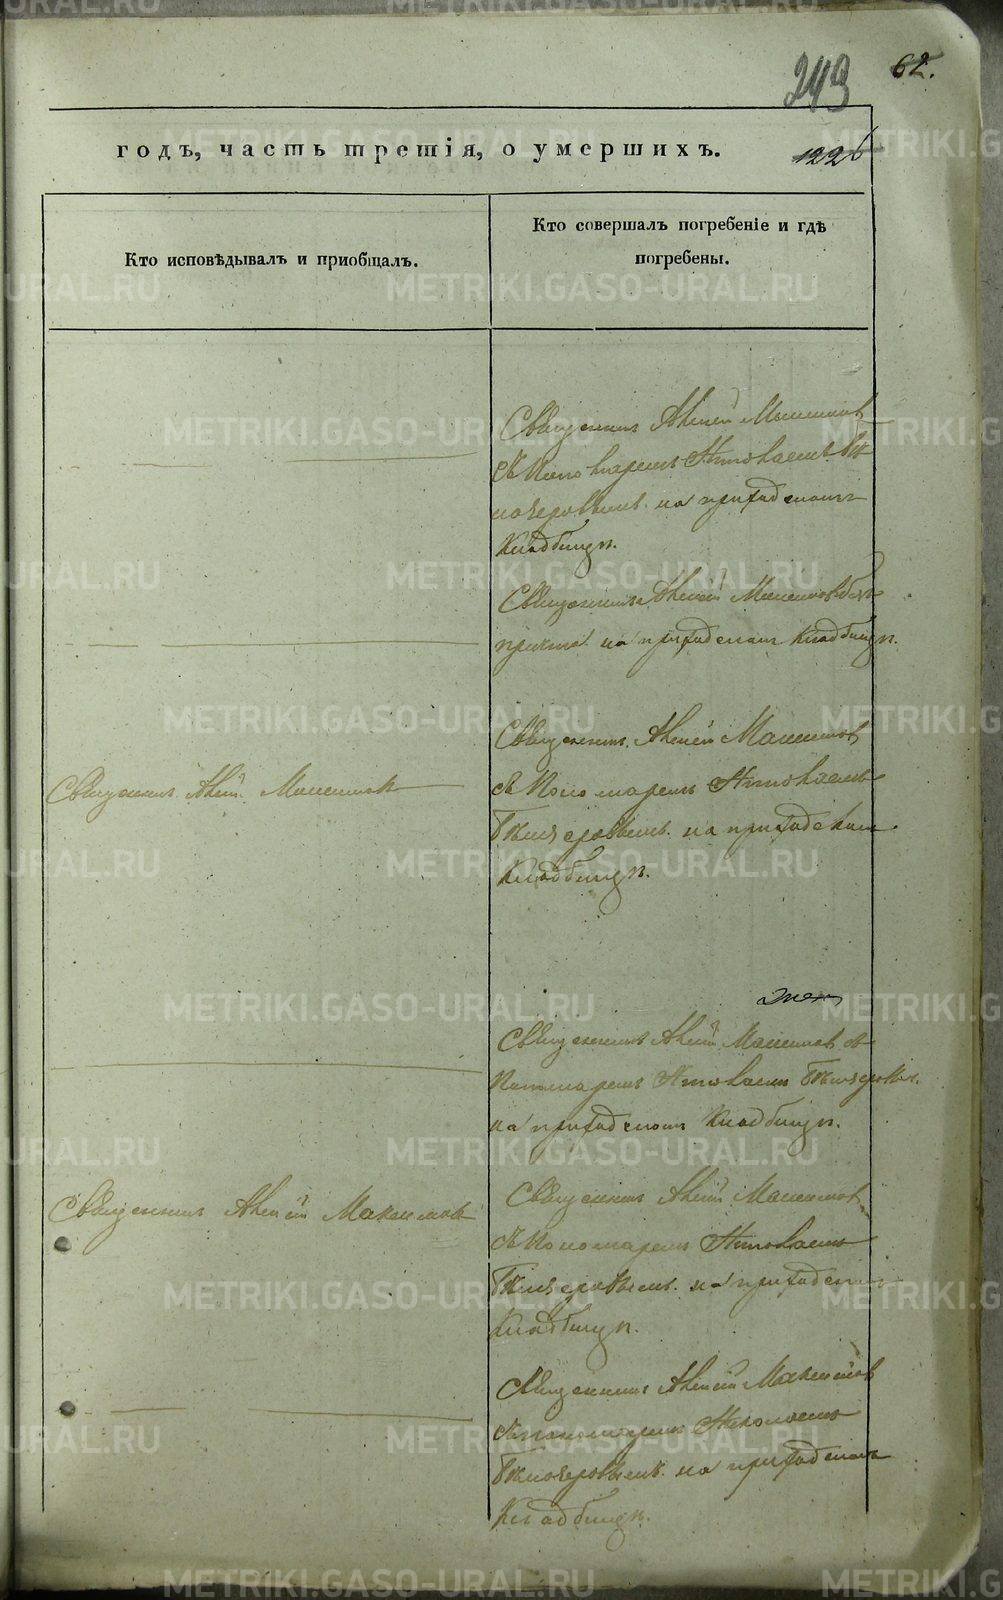 243
62.
годъ, часть третія, о умершихъ.
1226
Кто исповѣдывалъ и пріобщалъ.
Кто совершалъ погребеніе и гдѣ
погребены.
Священникъ Алексій
съ Пономаремъ Николаемъ
на приходскомъ
Кладбищѣ.
Священникъ Алексій безъ
причта на приходскомъ Кладбищѣ.
Священникъ Алексій
Священникъ Алексій Максимовъ
съ Пономаремъ Николаемъ
на приходскомъ
Кладбищѣ.
Священникъ Алексій Максимовъ съ
Пономаремъ Николаемъ
на приходскомъ Кладбищѣ.
Священникъ Алексій Максимовъ
Священникъ Алексій Максимовъ
съ Пономаремъ Николаемъ
на приходскомъ
Кладбищѣ.
Священникъ Алексій Максимовъ
съ пономаремъ Николаемъ
на приходскомъ
Кладбищѣ.
METRIKI.GASO-URAL.RU